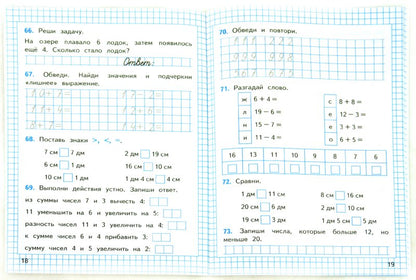 66. Реши задачу.
На озере плавало 6 лодок, затем появилось
ещё 4. Сколько стало лодок?
Ответ:
67. Обведи. Найди значения и подчеркни
«лишнее» выражение.
68. Поставь знаки >, <, =.
7 см 7 дм 2 дм 19 см
6 см 1 дм 16 см 10 см
10 см 1 дм 1 дм 4 см 4 см
69. Выполни действия устно. Запиши ответ.
из суммы чисел 7 и 3 вычесть 4:
11 уменьшить на 6 и увеличить на 5:
разность чисел 11 и 3 увеличить на 4:
к сумме чисел 6 и 4 прибавить 6:
сумму чисел 4 и 5 увеличить на 2:
18
70. Обведи и повтори.
71. Разгадай слово.
ж 6+4= с 8+8=
л 19−6= е 12−3=
н 15−7= е 3+3=
и 11−4= о 6+5=
16 13 11 10 9 8 7 6
72. Сравни.
1 дм 11 см 8 см 16 см
20 см 6 дм 2 дм 10 см
19 см 3 дм 1 дм 5 см 5 дм
73. Запиши числа, которые больше 12, но
меньше 20.
19